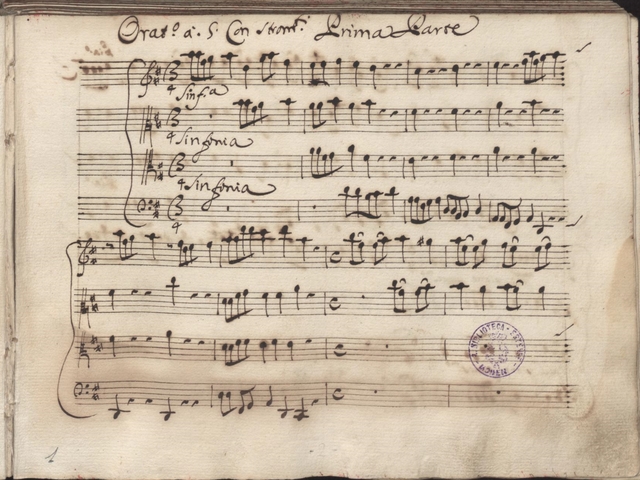 Orat.º à. 5. Con Strom.ti Prima Parte
Sinf.a
Sinfonia
Sinfonia
BIBLIOTECA ESTENSE
1